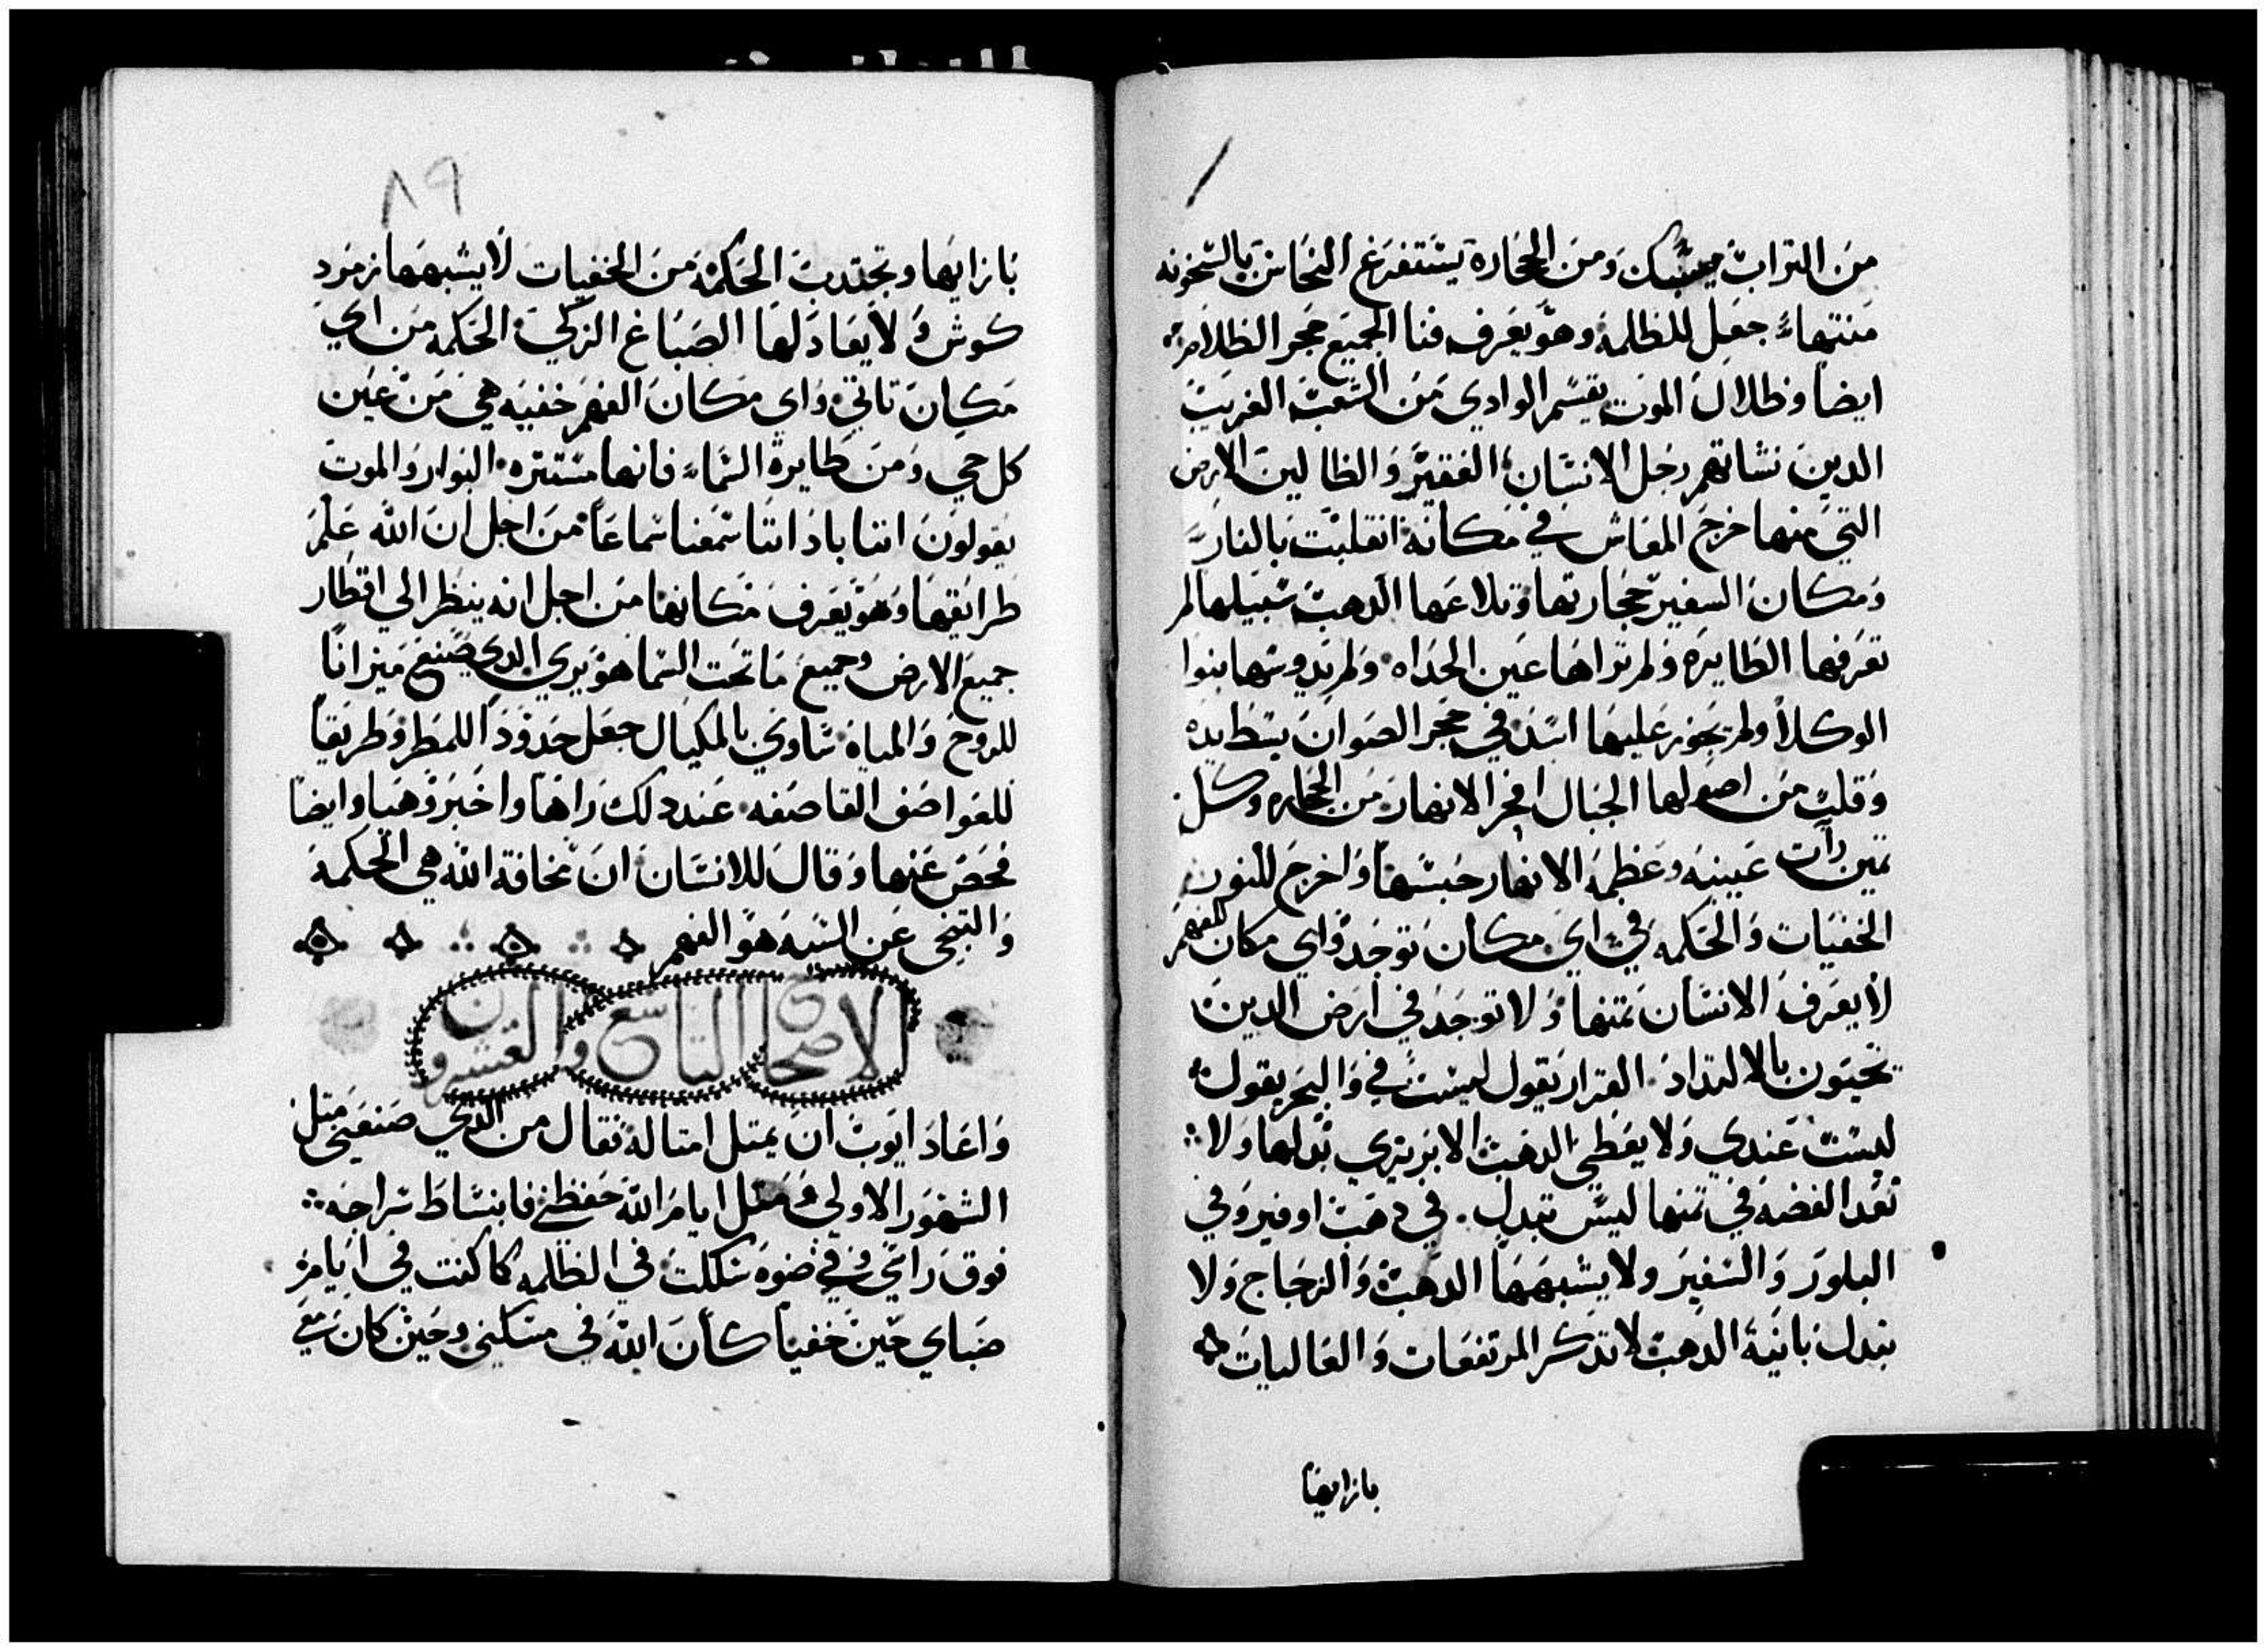 من التراب يسبك ومن الحجارة يستفرغ النحاس بالسخونه
منتهاء جعل للظلمة وهو يعرف فنا الجميع حجر الظلام
ايضا وظلال الموت يقسم الوادي من الشعب الغريب
الدين نشاتهم رجل الانسان الفقير والظالين الارض
التي منها خرج المعاش في مكانه انقلبت بالنار
ومكان السفير حجارتها وتلاعها الدهب سبيلها لم
تعرفها الطايره ولم تراها عين الحداه ولم يدوسها بنوا
الوكلا ولم يجوز عليها اسد في حجر الصوان بسط يده
وقلب من اصولها الجبال افجر الانهار من الحجاره وكل
تمين رأت عينيه وعظمة الانهار حبسها واخرج للنور
الخفيات والحكمه في اي مكان توجد واي مكان للفهم
لا يعرف الانسان تمنها ولا توجد في ارض الدين
يحيون بالالتداد القرار يقول ليست في والبحر يقول
ليست عندي ولا يعطي الدهب الابريزي بدلها ولا
تعد الفضه في تمنها ليس تبدل في دهب اوفير وفي
البلور والسفير ولا يشبهها الدهب والزجاج ولا
تبدل بانية الدهب لا تدكر المرتفعات والعاليات
بازايها
٨٩
بازايها وتجتدب الحكمة من الخفيات لا يشبهها زمرد
كوش ولا يعادلها الصباغ الزكي الحكمه من اي
مكان تاتي واي مكان الفهم خفيه هي من عين
كل حي ومن طايرة السماء فانها مستتره البوار والموت
يقولون اننا باداننا سمعنا سماعا من اجل ان الله علم
طرايقها وهو يعرف مكانها من اجل انه ينظر الي اقطار
جميع الارض وجميع ما تحت السما هو يري الدي صنع ميزانا
للروح والمياه ساوي بالمكيال جعل حدودا للمطر وطريقا
للعواصف القاصفه عند دلك راها واخبر وهيا وايضا
فحص عنها وقال للانسان ان مخافة الله هي الحكمة
والتنحي عن السيه هو الفهم
الاصحاح التاسع والعشرون
واعاد ايوب ان يمتل امتاله فقال من الدي صنعني متل
الشهور الاولي ومتل ايام الله حفظني فانبساط سراجه
فوق راسي وفي ضوه سلكت في الظلمه كما كنت في ايام
صباي حين خفيا كان الله في مسكني وحين كان معي